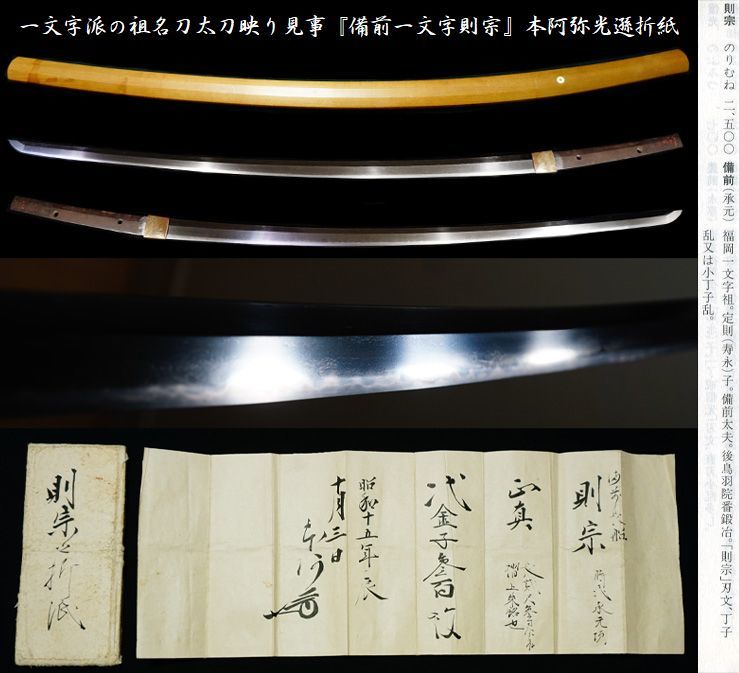 一文字派の祖名刀太刀映り見事『備前一文字則宗』本阿弥光遜折紙
則宗 のりむね 二、五〇〇 備前(承元) 福岡一文字祖。定則(寿永)子。備前太夫。後鳥羽院番鍛冶。「則宗」刃文、丁子
乱又は小丁子乱。
則宗
時代承元頃
正真
代金子參百枚
昭和十五年辰
十月三日
則宗之折紙